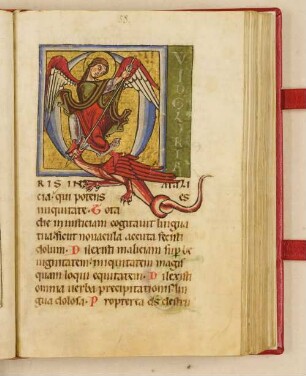 VIDGLORIA
RIS IN
cia. qui potens es
iniquitate. Tota
die iniusticiam cogitauit lingua
tua. sicut nouacula acuta fecisti
dolum. Dilexisti maliciam sup be
nignitatem. iniquitatem magis
quam loqui equitatem. Dilexisti
omnia uerba precipitationis. lin
gua dolosa. Propterea ds destru